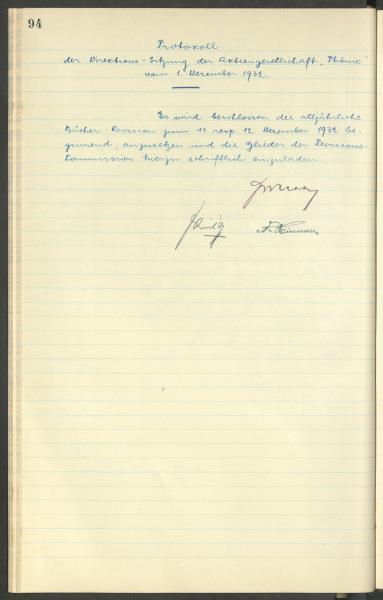 94
Protokoll
der Direktions-Sitzung der Aktiengesellschaft „Phönix"
vom 1. Dezember 1932.
Es wird beschlossen die alljährliche
Bücher-Revision zum 11 resp. 12 Dezember 1932 be-
ginnend, anzusetzen und die Glieder der Revisions-
Kommission hierzu schriftlich einzuladen.